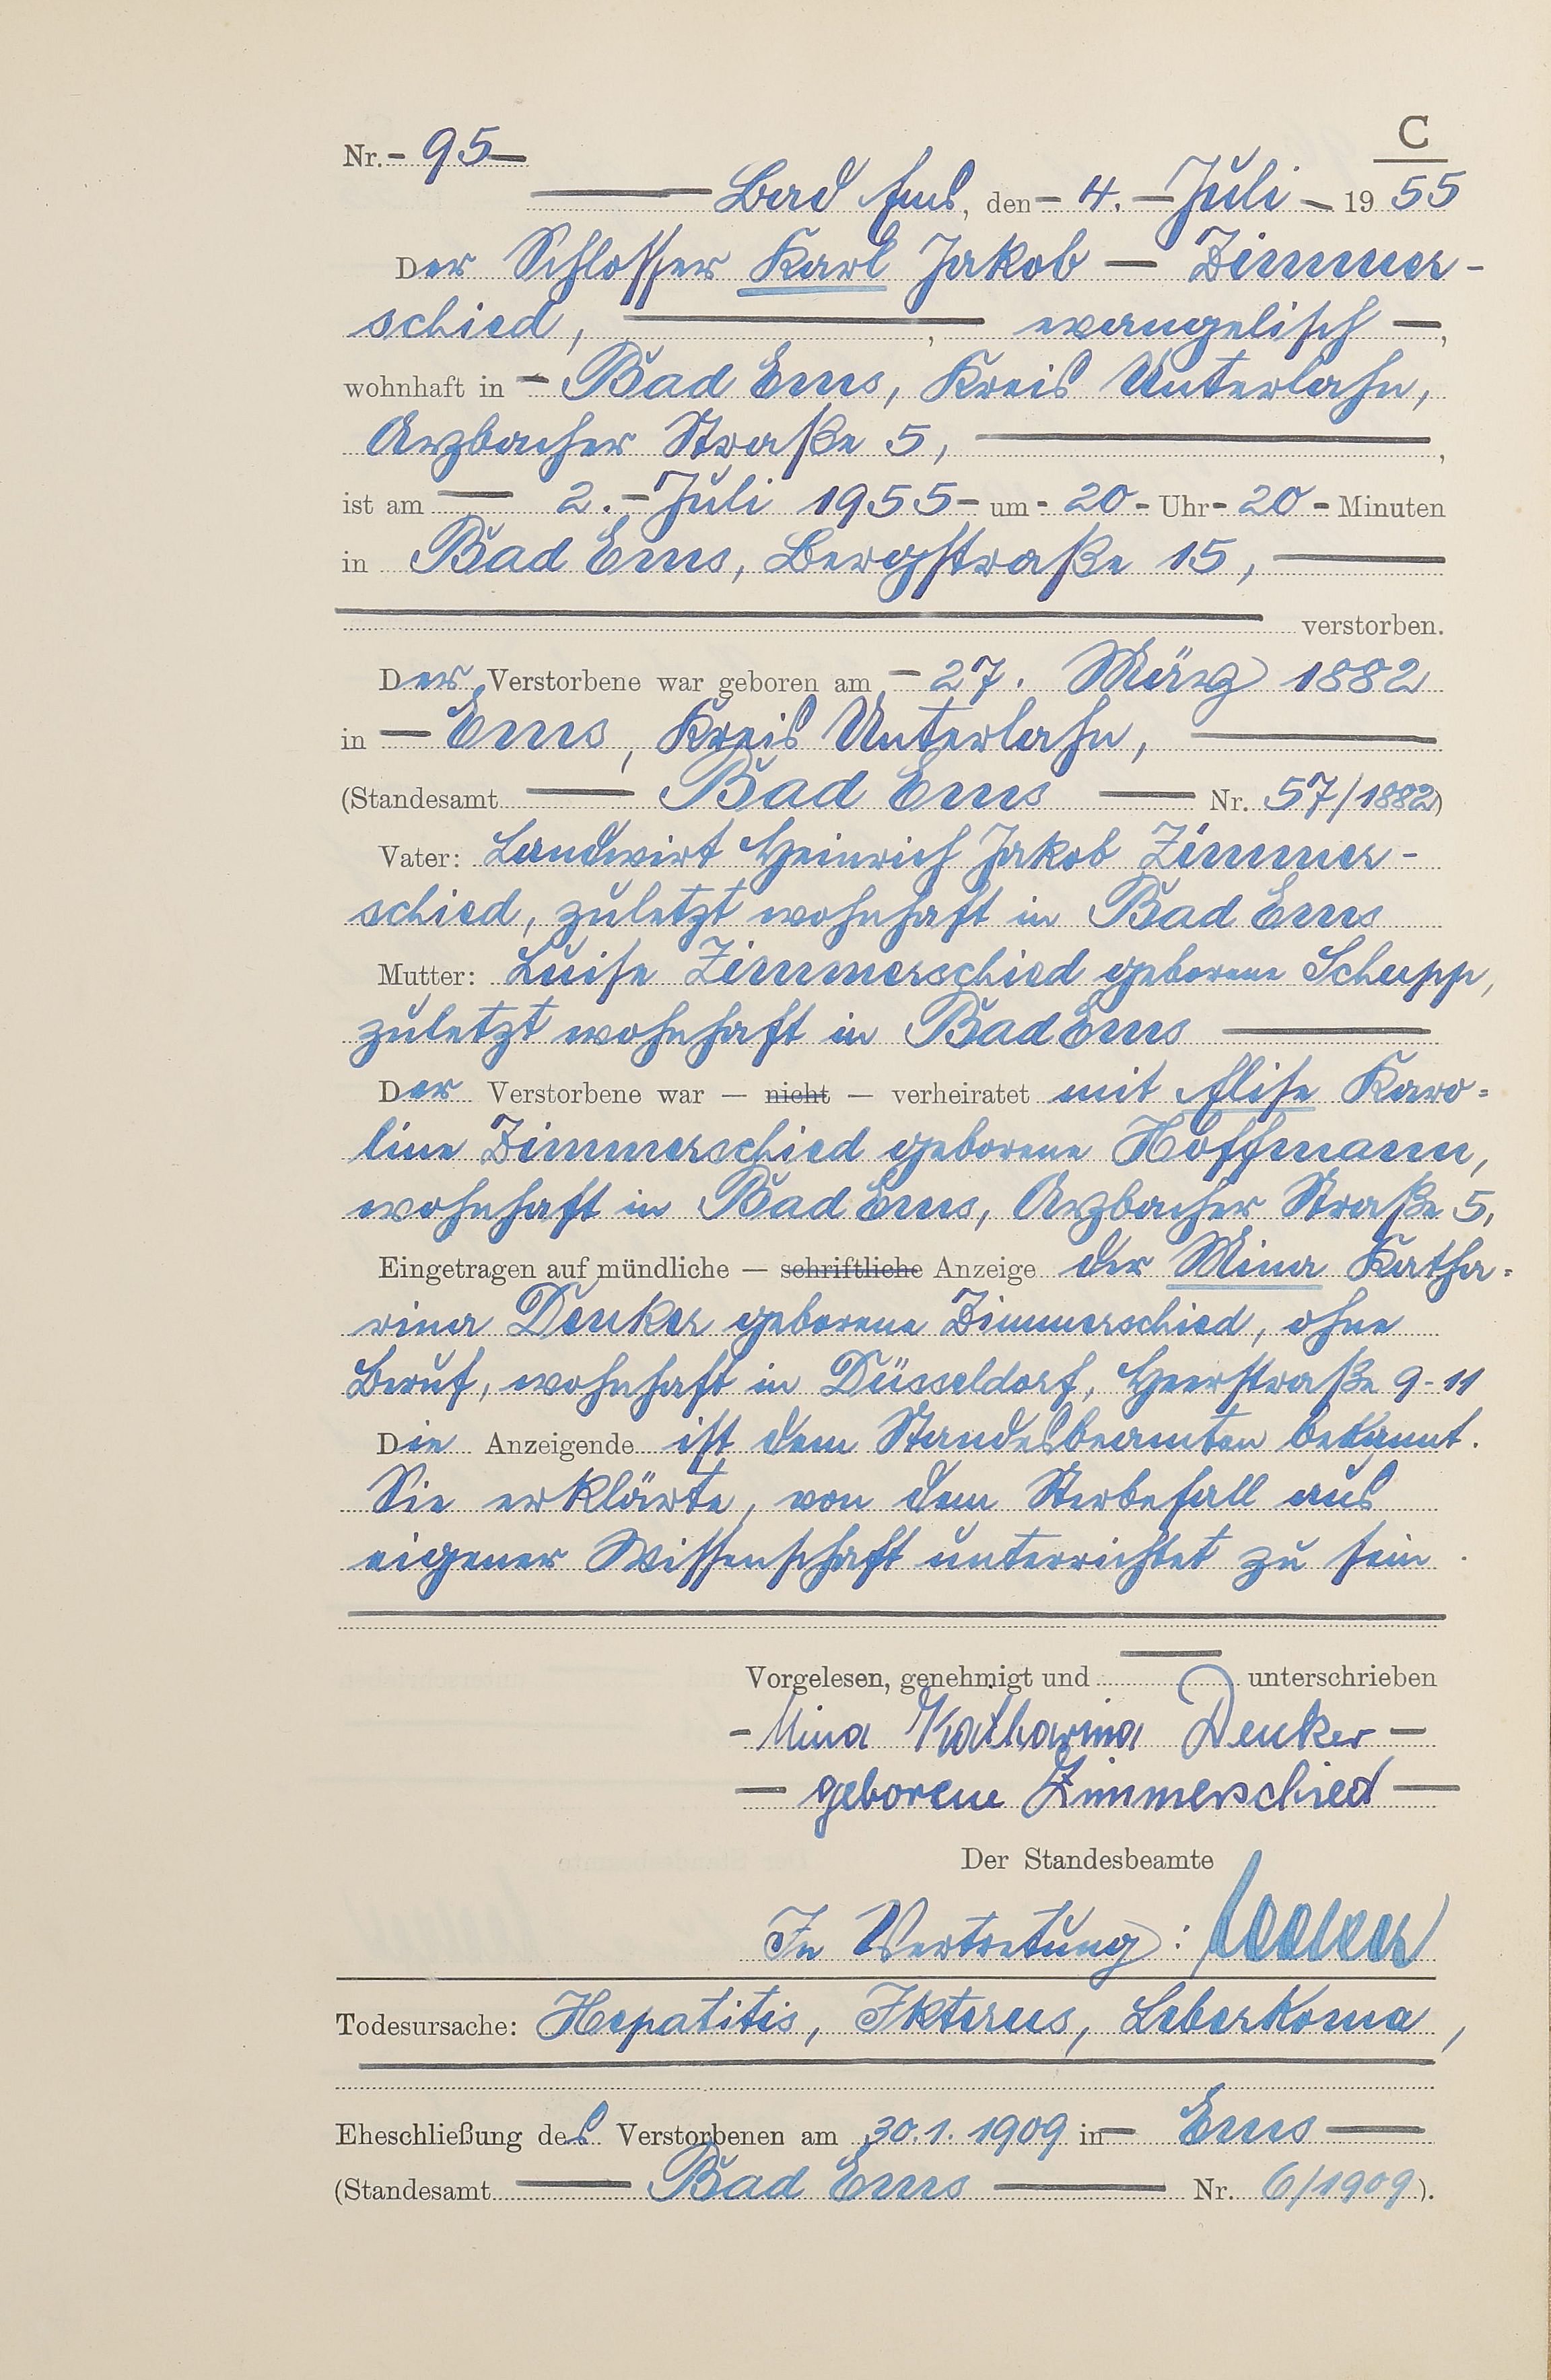 C
Nr. - 95 -
Bad Ems, den - 4. - Juli - 19 55
Der Schlosser Karl Jakob - Zimmer-
schied, , evangelisch -,
wohnhaft in - Bad Ems, Kreis Unterlahn,
Arzbacher Straße 5, ,
ist am - 2. - Juli 1955 - um - 20 - Uhr - 20 - Minuten
in Bad Ems, Bergstraße 15,
verstorben.
Der Verstorbene war geboren am - 27. März 1882
in - Ems, Kreis Unterlahn,
(Standesamt - Bad Ems - Nr. 57/1882)
Vater: Landwirt Heinrich Jakob Zimmer-
schied, zuletzt wohnhaft in Bad Ems
Mutter: Luise Zimmerschied geborene Schupp,
zuletzt wohnhaft in Bad Ems
Der Verstorbene war — nicht — verheiratet mit Elise Karo=
line Zimmerschied geborene Hoffmann,
wohnhaft in Bad Ems, Arzbacher Straße 5,
Eingetragen auf mündliche — schriftliche Anzeige der Mina Katha=
rina Denker geborene Zimmerschied, ohne
Beruf, wohnhaft in Düsseldorf, Heerstraße 9-11
Die Anzeigende ist dem Standesbeamten bekannt.
Sie erklärte, von dem Sterbefall aus
eigener Wissenschaft unterrichtet zu sein.
Vorgelesen, genehmigt und - unterschrieben
- Mina Katharina Denker -
- geborene Zimmerschied -
Der Standesbeamte
In Vertretung:
Todesursache: Hepatitis, Ikterus, Leberkoma,
Eheschließung des Verstorbenen am 30.1.1909 in - Ems -
(Standesamt - Bad Ems - Nr. 6/1909).